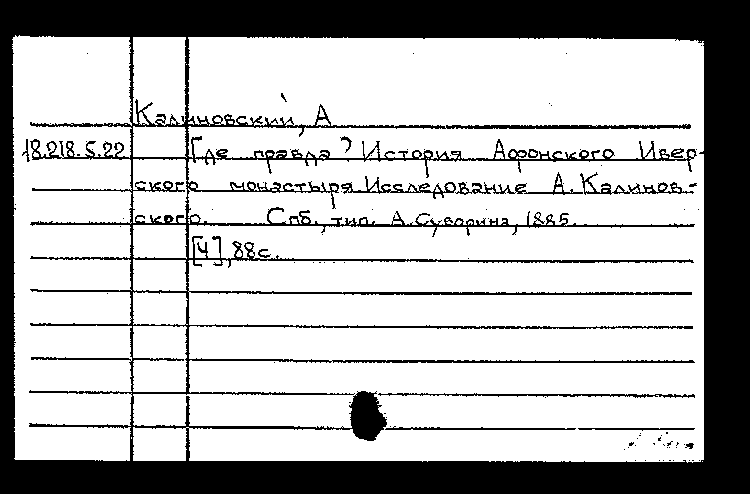 Калиновский, А
18.218.5.22 Где правда? История Афонского Ивер-
ского монастыря Исследование А. Калинов-
ского. Спб., тип. А. Суворина, 1885.
[4], 88с.